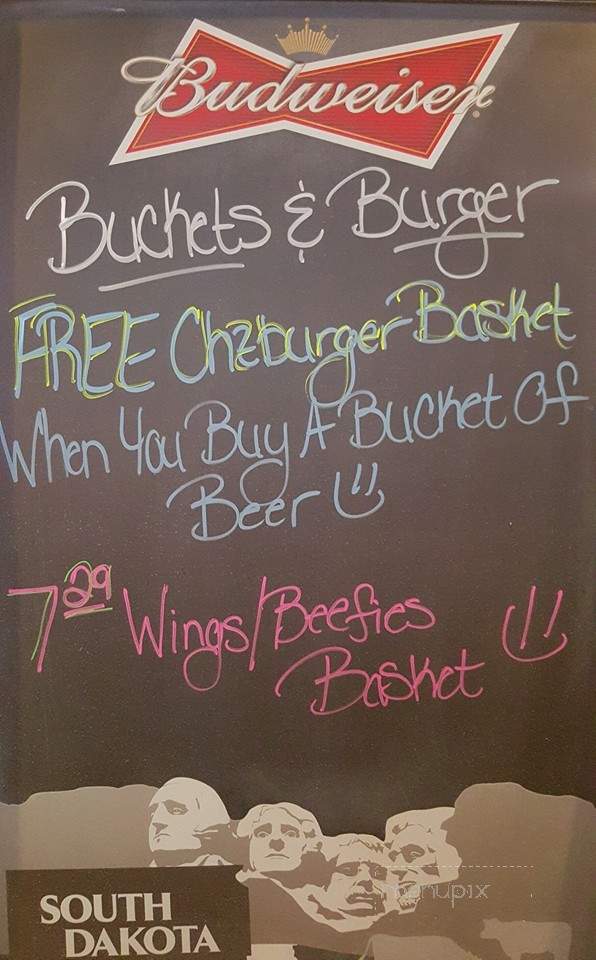 Budweiser
Buckets & Burger
FREE Chzburger Basket
When You Buy A Bucket Of
Beer
7 29 Wings/Beefies
Basket
menupix
SOUTH
DAKOTA